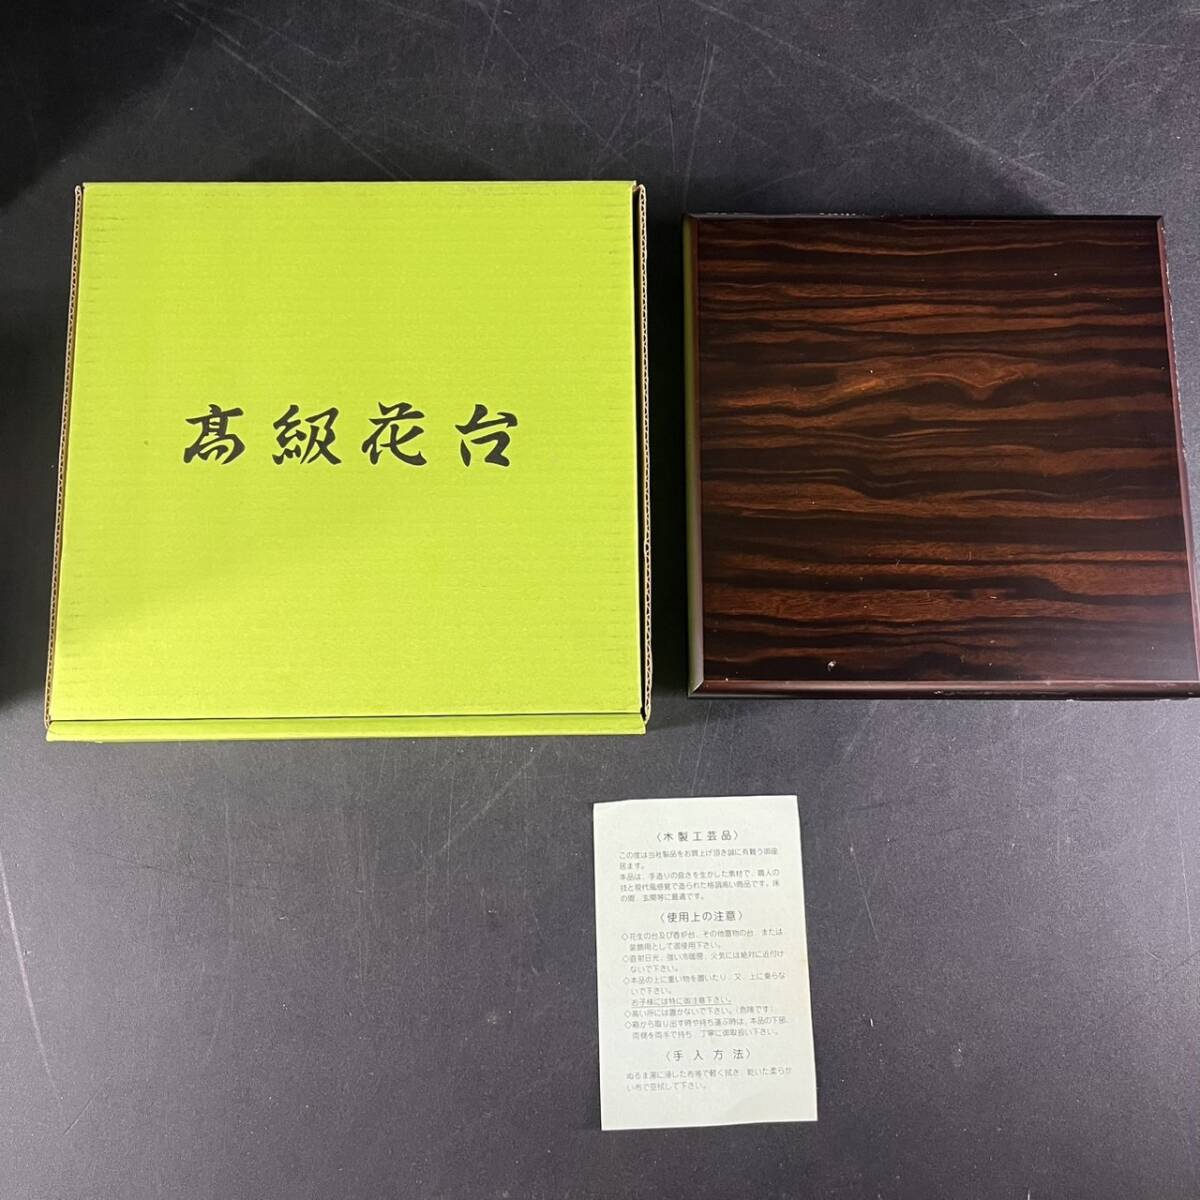 髙級花台
〈木製工芸品〉
この度は当社製品をお買上げ頂き誠に有難う御座
居ます。
本品は、手造りの良さを生かした素材で、職人の
技と現代風感覚で造られた格調高い商品です。床
の間、玄関等に最適です。
〈使用上の注意〉
◇花生の台及び香炉台、その他置物の台、または
装飾用として御使用下さい。
◇直射日光、強い冷暖房、火気には絶対に近付け
ないで下さい。
◇本品の上に重い物を置いたり、又、上に乗らな
いで下さい。
お子様には特に御注意下さい。
◇高い所には置かないで下さい。(危険です)
◇箱から取り出す時や持ち運ぶ時は、本品の下部、
両側を両手で持ち、丁寧に御取扱い下さい。
〈手入方法〉
ぬるま湯に浸した布等で軽く拭き、乾いた柔らか
い布で空拭して下さい。